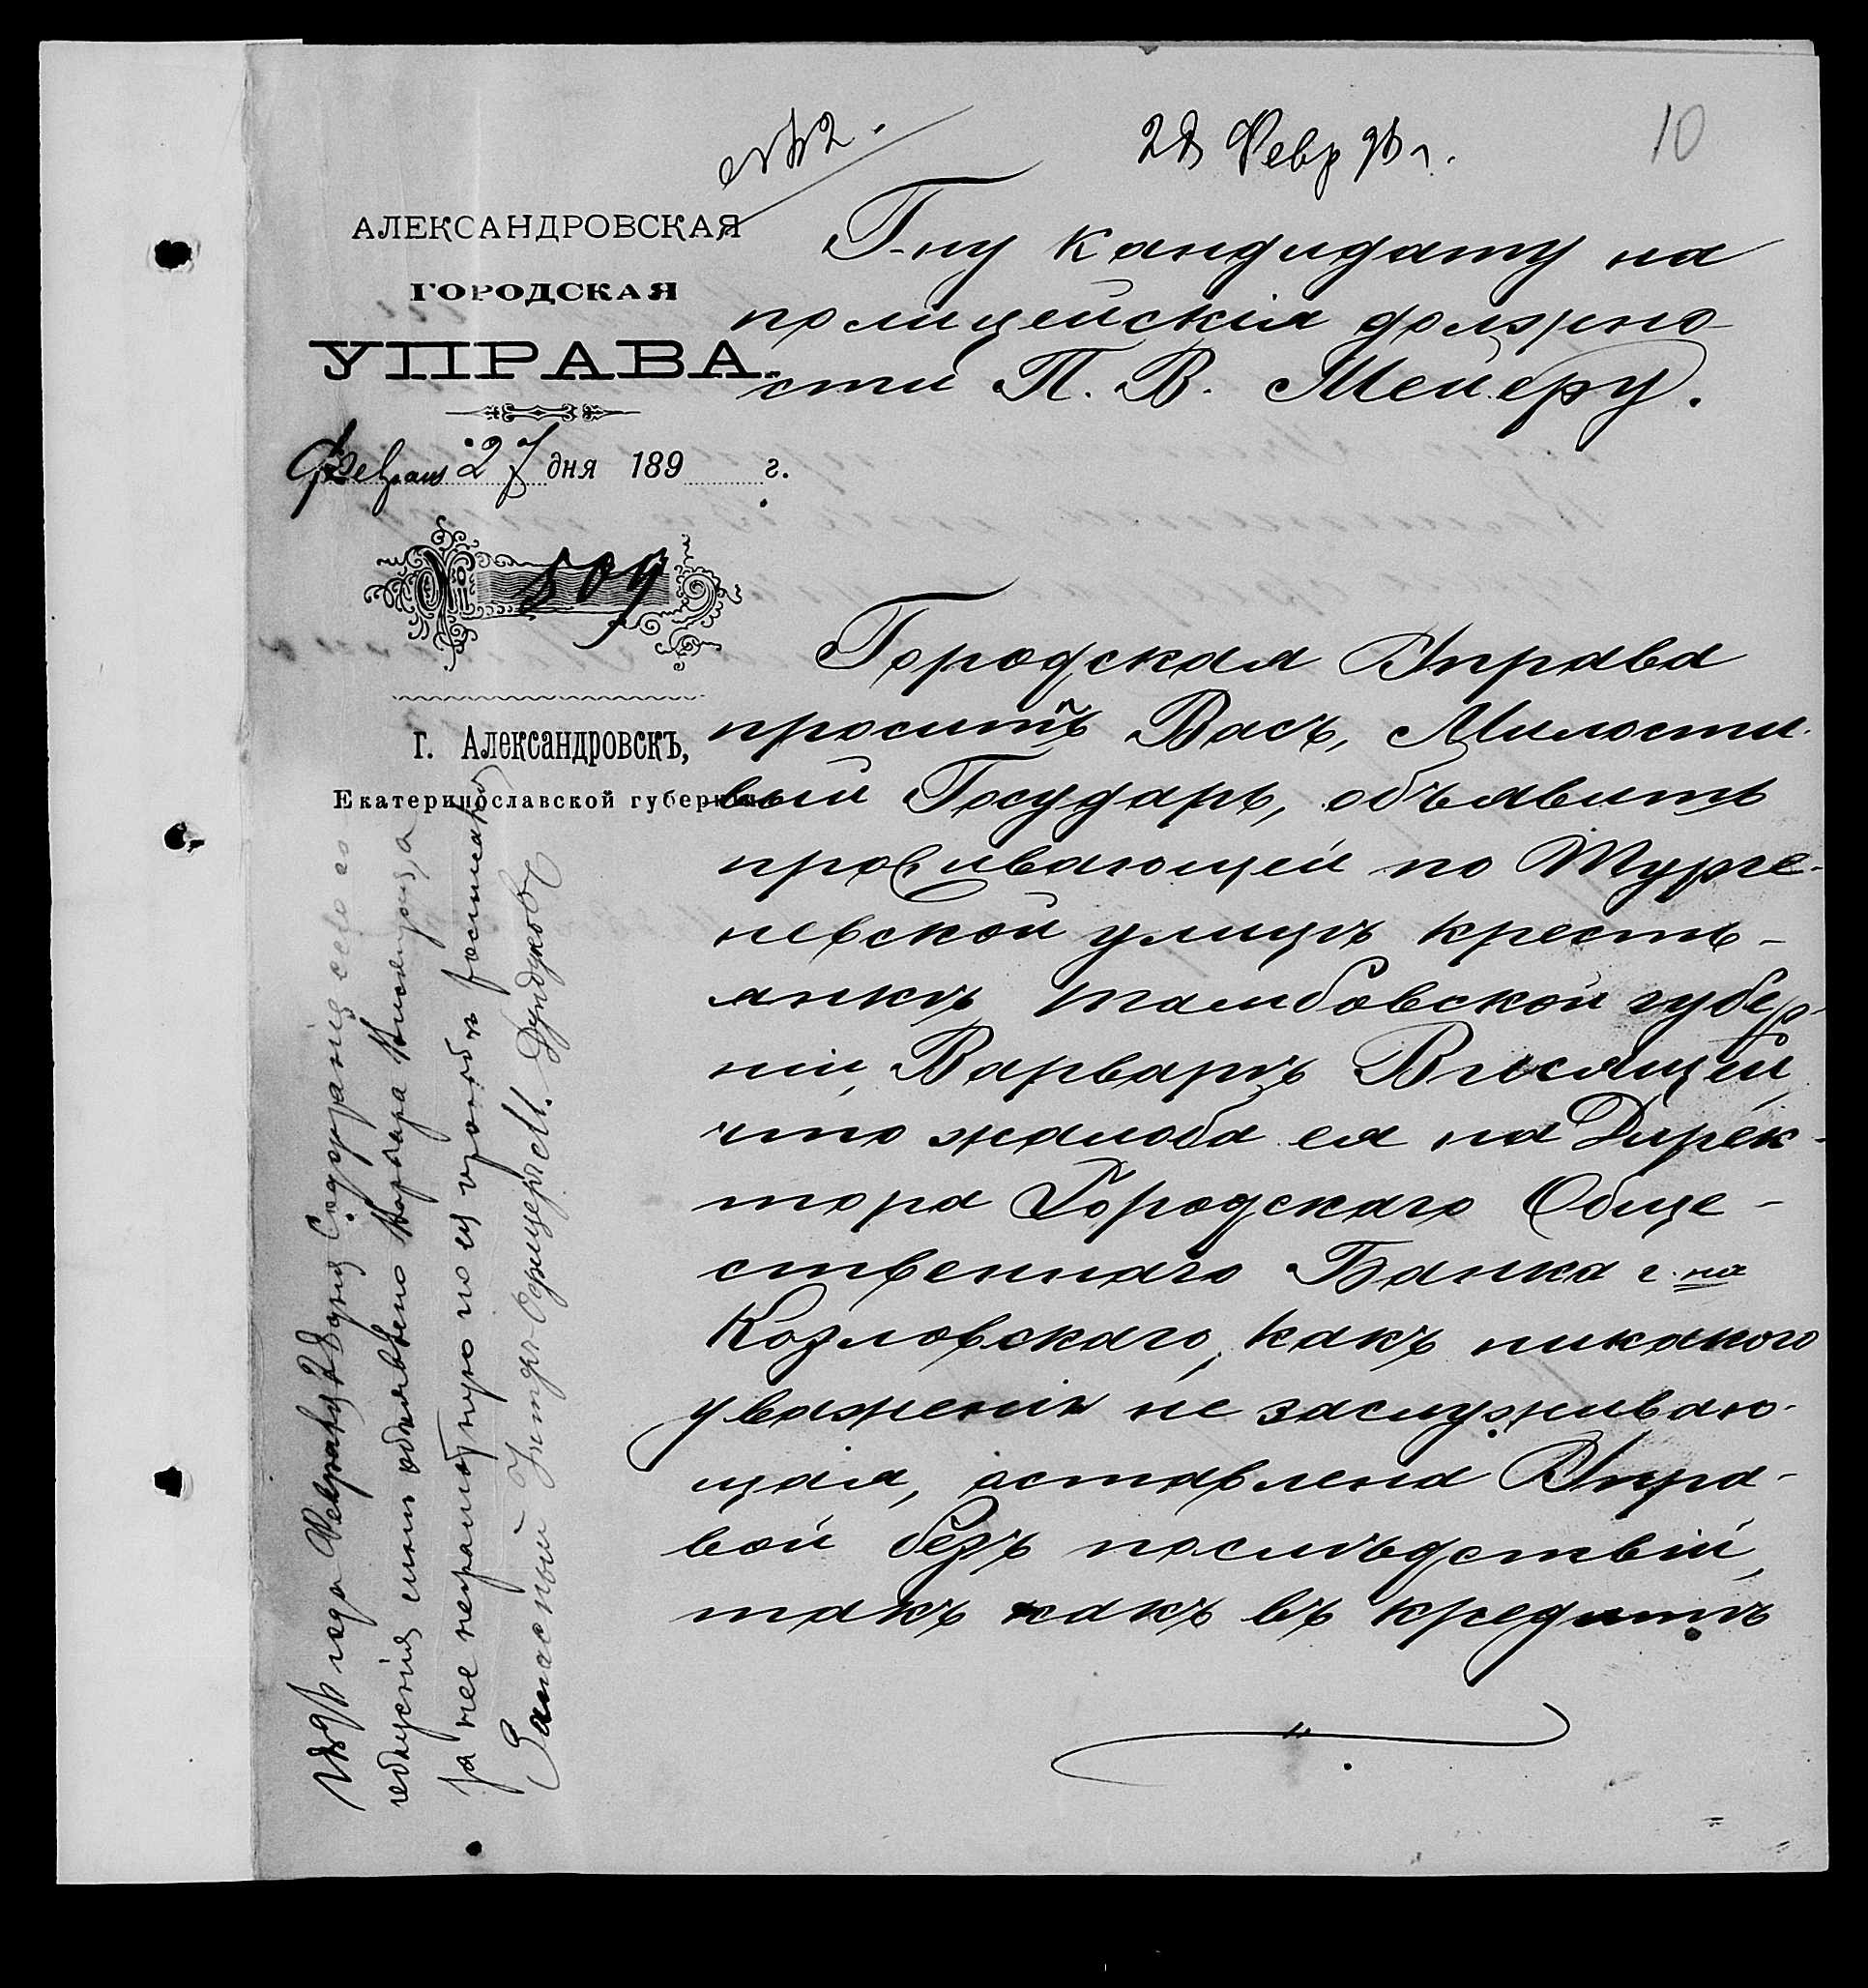 28 Февр 96 г.
10
АЛЕКСАНДРОВСКАЯ
ГОРОДСКАЯ
УПРАВА.
Февраля 27 дня 189 г.
№ 509
г. Александровскъ,
Екатеринославской губерніи.
Г-ну кандидату на
полицейскія должно-
сти П. В. Мейеру.
Городская Управа
проситъ Васъ, Милости-
вый Государь, объявить
проживающей по Турге-
невской улицѣ кресть-
янкѣ Тамбовской губер-
ніи, Варварѣ Висящей,
что жалоба ея на Дирек-
тора Городскаго Обще-
ственнаго Банка г-на
Козловскаго, какъ никакого
уваженія не заслуживаю-
щая, оставлена Упра-
вой безъ послѣдствій,
такъ какъ въ кредитѣ
года Февраля 28 дня Содержаніе сего
объявлено Варвара
за нее неграмотную по ея прозьбѣ
Запасный Унтеръ-Офицеръ М. Дундуковъ